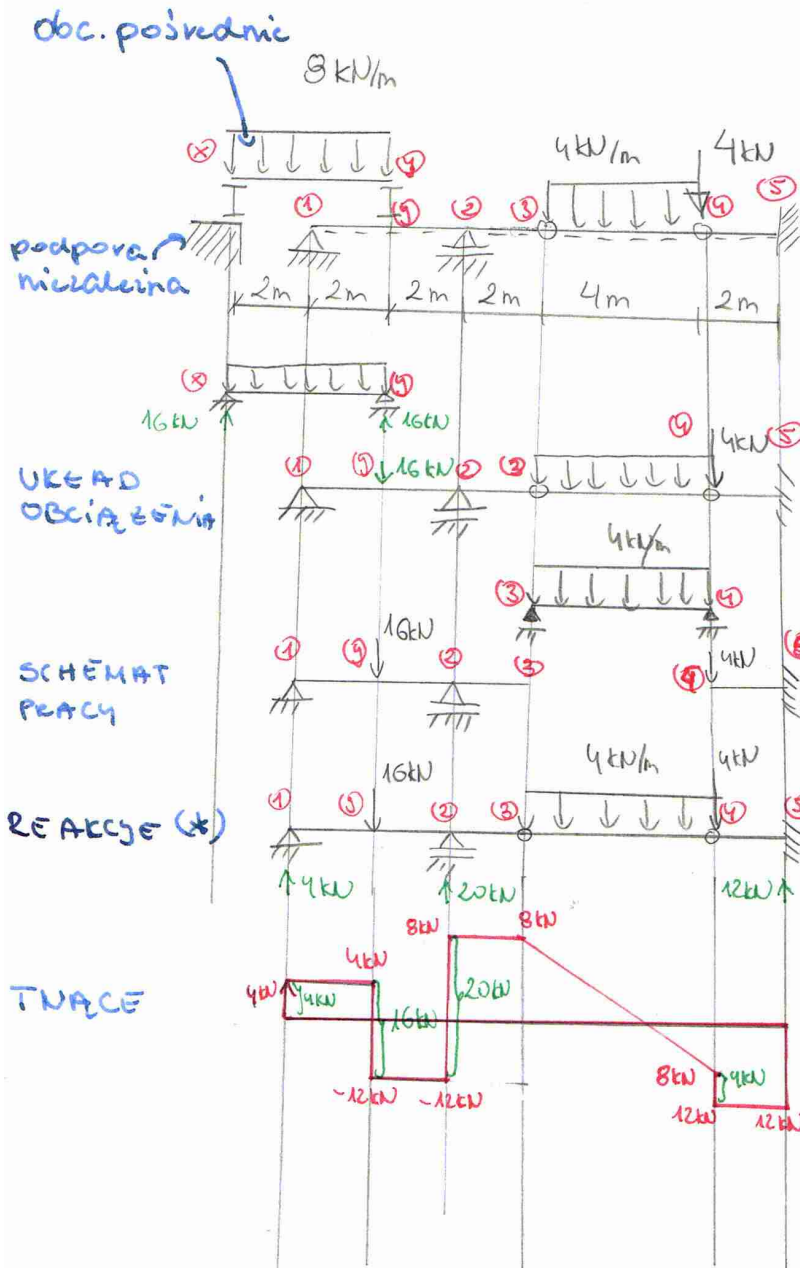 obc. pośrednie
8 kN/m
4 kN/m 4 kN
x y
1 y 2 3 4 5
podpora niezależna
2m 2m 2m 2m 4m 2m
x y
16 kN 16 kN
4 4 kN 5
UKŁAD OBCIĄŻENIA
1 y 16 kN 2 3
4 kN/m
3 4
16 kN
SCHEMAT PRACY
1 y 2 3 4 4 kN
16 kN 4 kN/m 4 kN
REAKCJE (*)
1 y 2 3 4 5
4 kN 20 kN 12 kN
8 kN 8 kN
TNĄCE
4 kN 4 kN 4 kN 16 kN 20 kN
-12 kN -12 kN
8 kN 4 kN
12 kN 12 kN